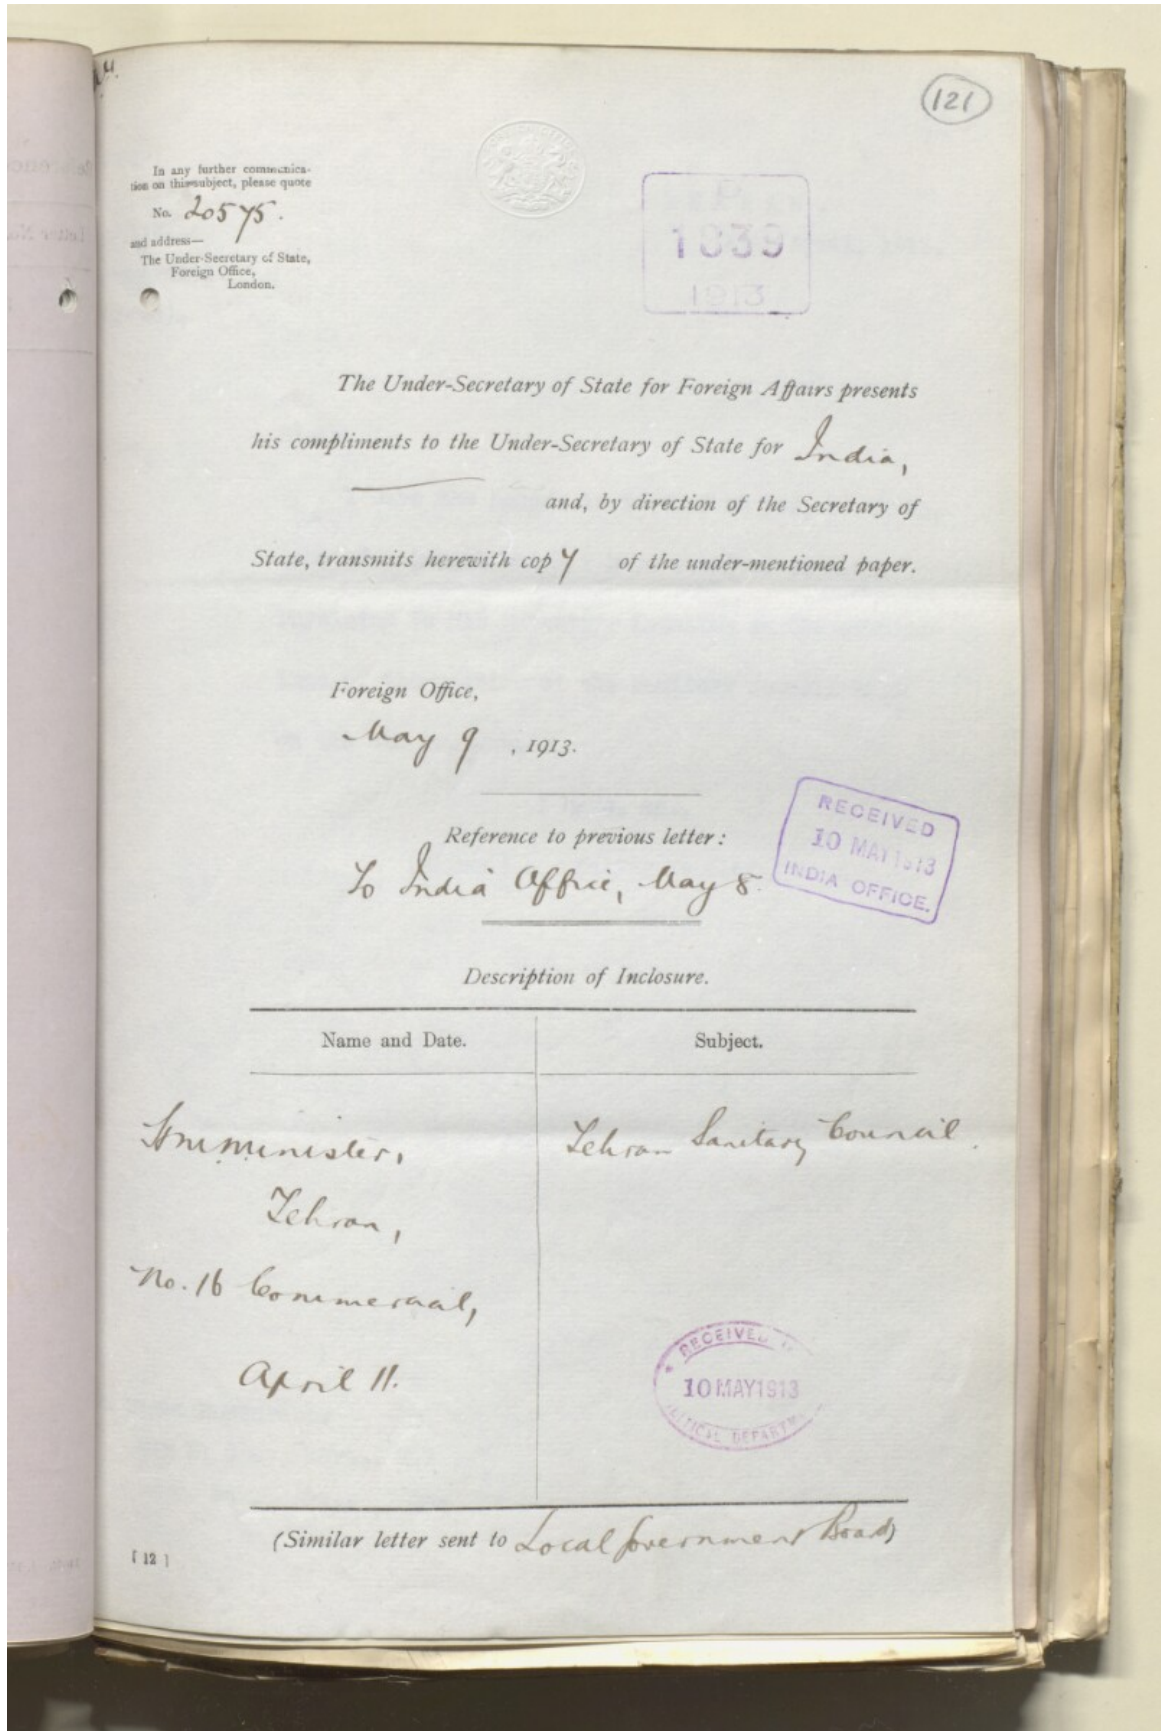 121
In any further communica-
tion on this subject, please quote
No. 20575.
and address—
The Under-Secretary of State,
Foreign Office,
London.
1839
1913
The Under-Secretary of State for Foreign Affairs presents
his compliments to the Under-Secretary of State for India,
and, by direction of the Secretary of
State, transmits herewith copy of the under-mentioned paper.
Foreign Office,
May 9, 1913.
RECEIVED
10 MAY 1913
INDIA OFFICE.
Reference to previous letter:
To India Office, May 8.
Description of Inclosure.
Name and Date. Subject.
Hm Minister, Tehran Sanitary Council.
Tehran,
No. 16 Commercial,
April 11.
RECEIVED
10 MAY 1913
DEPARTM
(Similar letter sent to Local Government Board)
[12]